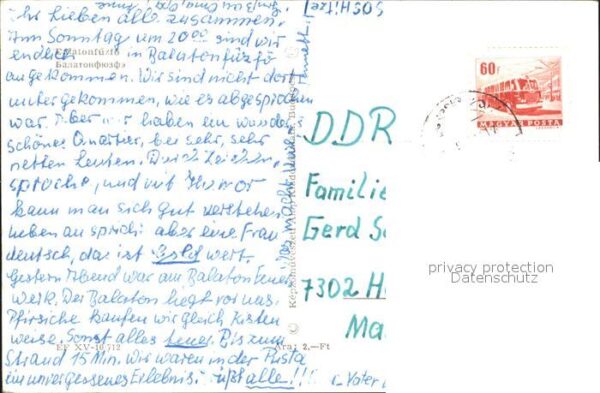 Ihr Lieben alle zusammen.
Am Sonntag um 20.00 sind wir
endlich in Balatonfüzfő
Balatonfűzfő
Балатонфюзфэ
angekommen. Wir sind nicht dort
untergekommen, wie es abgesprochen
war. Aber wir haben ein wunder-
schönes Quartier, bei sehr, sehr
netten Leuten. Durch Zeichen-
sprache, und mit Humor
kann man sich gut verstehen
neben an spricht aber eine Frau
deutsch, das ist Gold wert.
Gestern Abend war am Balaton Feuer
werk. Der Balaton liegt vor uns.
Pfirsiche kaufen wir gleich Kisten
weise. Sonst alles teuer. Bis zum
Strand 15 Min. Wir waren in der Pusta
ein unvergessenes Erlebnis. Grüßt alle!!!
Vater
EF XV-10 712
Ára: 2.—Ft
DDR
Familie
Gerd S
7302 H
Ma
60f
MAGYAR POSTA
privacy protection
Datenschutz